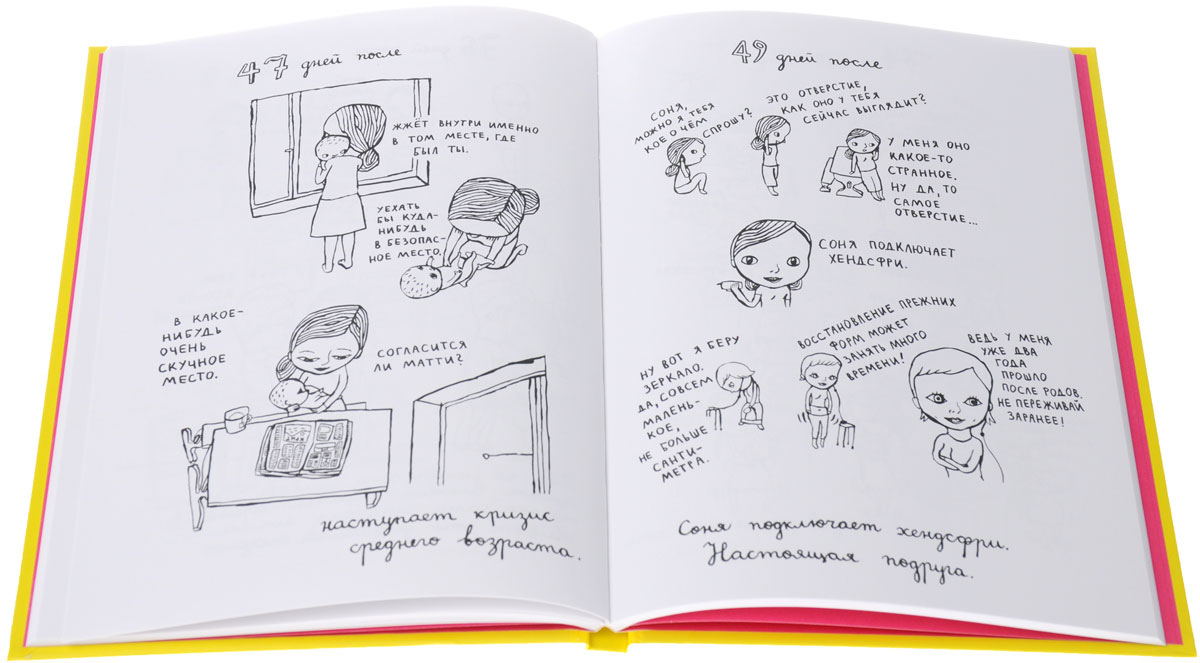 47 дней после
ЖЖЁТ ВНУТРИ ИМЕННО
В ТОМ МЕСТЕ, ГДЕ
БЫЛ ТЫ.
УЕХАТЬ
БЫ КУДА-
НИБУДЬ
В БЕЗОПАС-
НОЕ МЕСТО.
В КАКОЕ-
НИБУДЬ
ОЧЕНЬ
СКУЧНОЕ
МЕСТО.
СОГЛАСИТСЯ
ЛИ МАТТИ?
наступает кризис
среднего возраста.
49 дней после
СОНЯ,
МОЖНО Я ТЕБЯ
КОЕ О ЧЁМ
СПРОШУ?
ЭТО ОТВЕРСТИЕ,
КАК ОНО У ТЕБЯ
СЕЙЧАС ВЫГЛЯДИТ?
У МЕНЯ ОНО
КАКОЕ-ТО
СТРАННОЕ.
НУ ДА, ТО
САМОЕ
ОТВЕРСТИЕ...
СОНЯ ПОДКЛЮЧАЕТ
ХЕНДСФРИ.
НУ ВОТ Я БЕРУ
ЗЕРКАЛО.
ДА, СОВСЕМ
МАЛЕНЬ-
КОЕ,
НЕ БОЛЬШЕ
САНТИ-
МЕТРА.
ВОССТАНОВЛЕНИЕ ПРЕЖНИХ
ФОРМ МОЖЕТ
ЗАНЯТЬ МНОГО
ВРЕМЕНИ!
ВЕДЬ У МЕНЯ
УЖЕ ДВА
ГОДА
ПРОШЛО
ПОСЛЕ РОДОВ.
НЕ ПЕРЕЖИВАЙ
ЗАРАНЕЕ!
Соня подключает хендсфри.
Настоящая подруга.